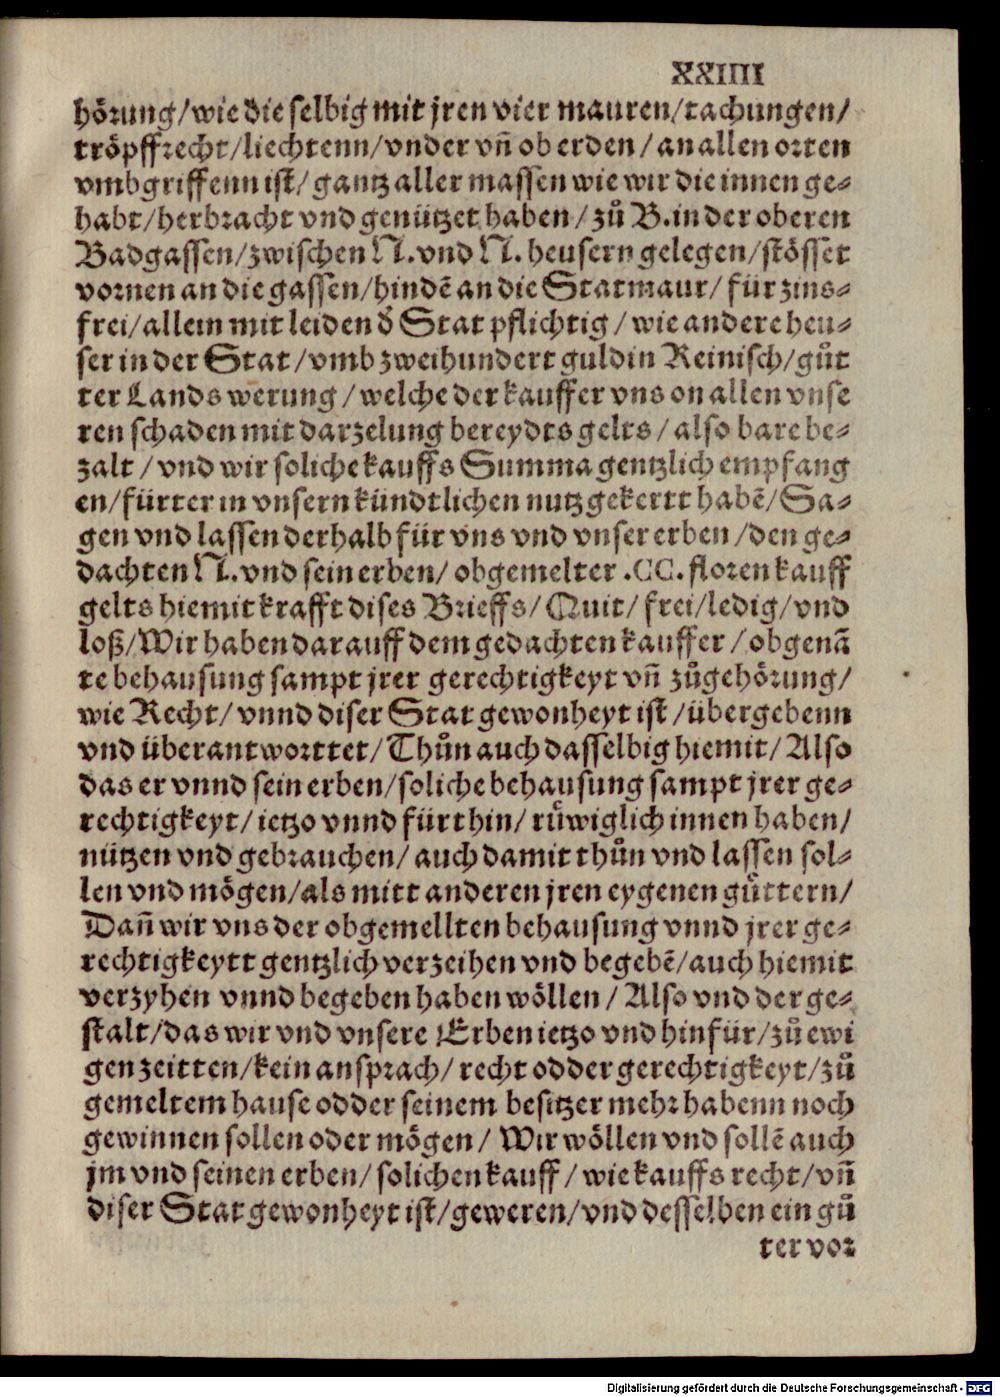 XXIIII
hörung/wie die selbig mit jren vier mauren/tachungen/
tröpffrecht/liechtenn/vnder vñ ob erden/an allen orten
vmbgriffenn ist/gantz aller massen wie wir die innen ge-
habt/herbracht vnd genützet haben/zů B.in der oberen
Badgassen/zwischen N.vnd N.heusern gelegen/stösset
vornen an die gassen/hindẽ an die Statmaur/für zins-
frei/allein mit leiden d̕ Stat pflichtig/wie andere heu-
ser in der Stat/vmb zweihundert guldin Reinisch/gůt
ter Lands werung/welche der kauffer vns on allen vnse
ren schaden mit darzelung bereydts gelts/also bare be-
zalt/vnd wir soliche kauffs Summa gentzlich empfang
en/fürter in vnsern kündtlichen nutz gekertt habẽ/Sa-
gen vnd lassen derhalb für vns vnd vnser erben/den ge-
dachten N.vnd sein erben/obgemelter .CC. floren kauff
gelts hiemit krafft dises Brieffs/Quit/frei/ledig/vnd
loß/Wir haben darauff dem gedachten kauffer/obgenã
te behausung sampt jrer gerechtigkeyt vñ zůgehörung/
wie Recht/vnnd diser Stat gewonheyt ist/übergebenn
vnd überantworttet/Thůn auch dasselbig hiemit/Also
das er vnnd sein erben/soliche behausung sampt jrer ge-
rechtigkeyt/ietzo vnnd fürthin/růwiglich innen haben/
nützen vnd gebrauchen/auch damit thůn vnd lassen sol-
len vnd mögen/als mitt anderen jren eygenen gůttern/
Dañ wir vns der obgemellten behausung vnnd jrer ge-
rechtigkeytt gentzlich verzeihen vnd begebẽ/auch hiemit
verzyhen vnnd begeben haben wöllen/Also vnd der ge-
stalt/das wir vnd vnsere Erben ietzo vnd hinfür/zů ewi
gen zeitten/kein ansprach/recht odder gerechtigkeyt/zů
gemeltem hause odder seinem besitzer mehr habenn noch
gewinnen sollen oder mögen/Wir wöllen vnd sollẽ auch
jm vnd seinen erben/solichen kauff/wie kauffs recht/vñ
diser Stat gewonheyt ist/geweren/vnd desselben ein gů
ter vor
Digitalisierung gefördert durch die Deutsche Forschungsgemeinschaft - DFG